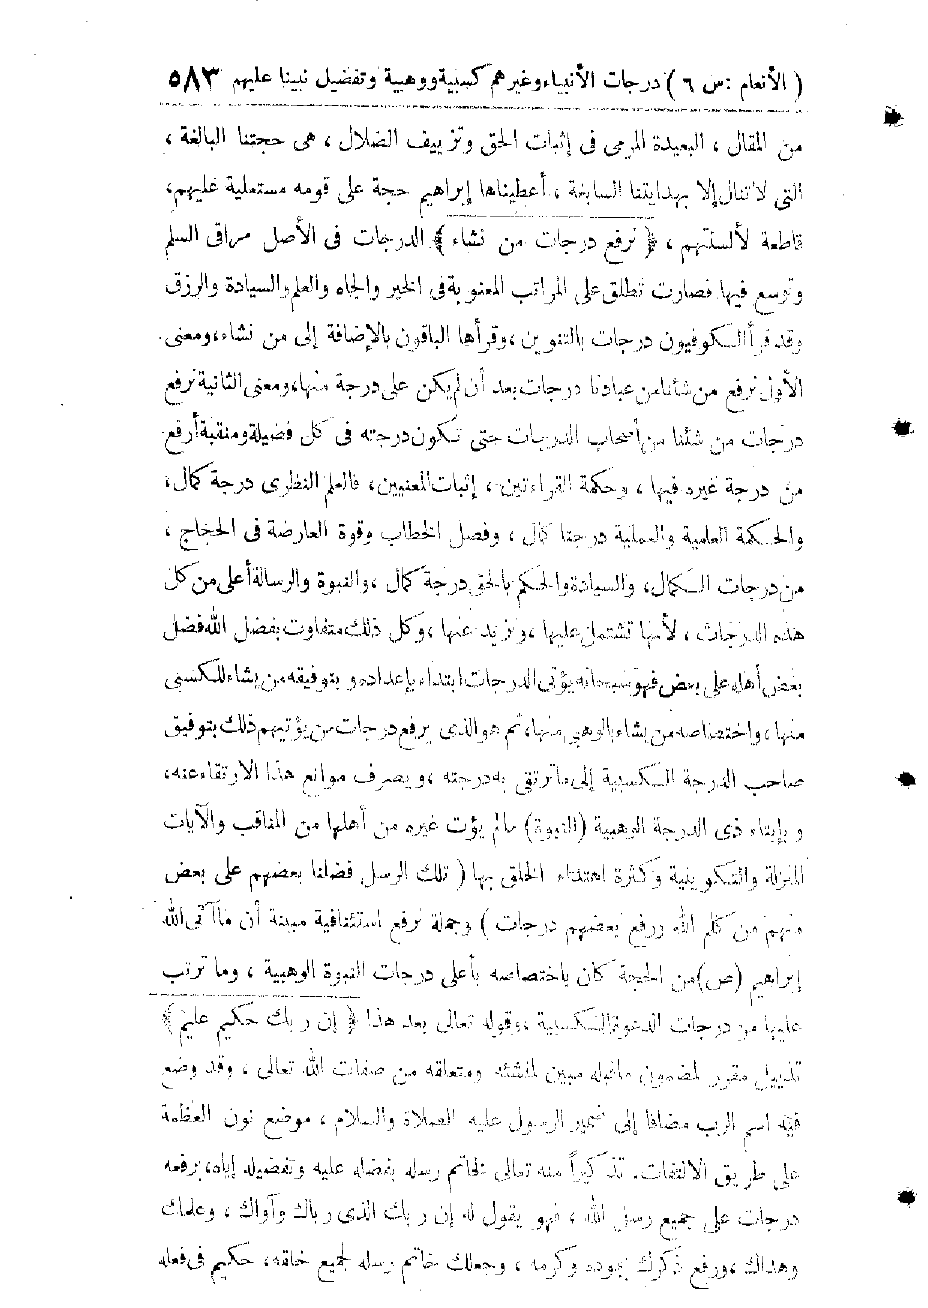 ( الأنعام : س ٦ ) درجات الأنبياء وغيرهم كسبية ووهبية وتفضيل نبينا عليهم ٥٨٣
من المقال ، البعيدة المرمى فى إثبات الحق وتزييف الضلال ، هى حجتنا البالغة ،
التى لا تنال إلا بهدايتنا السابغة ، أعطيناها إبراهيم حجة على قومه مستعلية عليهم ،
قاطعة لألسنتهم ، ﴿ نرفع درجات من نشاء ﴾ الدرجات فى الأصل مراقى السلم
وتوسع فيها فصارت تطلق على المراتب المعنوية فى الخير والجاه والعلم والسيادة والرزق
وقد قرأ الكوفيون درجات بالتنوين ، وقرأها الباقون بالإضافة إلى من نشاء ، ومعنى
الأول نرفع من شئنا من عبادنا درجات بعد أن لم يكن على درجة منها ، ومعنى الثانية نرفع
درجات من شئنا من أصحاب الدرجات حتى تكون درجته فى كل فضيلة ومنقبة أرفع
من درجة غيره فيها ، وحكمة القراءتين ، إثبات المعنيين ، فالعلم النظرى درجة كمال ،
والحكمة العلمية والعملية درجتا كمال ، وفصل الخطاب وقوة العارضة فى الحجاج ،
من درجات الكمال ، والسيادة والحكم بالحق درجة كمال ، والنبوة والرسالة أعلى من كل
هذه الدرجات ، لأنها تشتمل عليها ، وتزيد عنها ، وكل ذلك متفاوت بفضل الله فضل
بعض أهله على بعض فهو سبحانه يؤتى الدرجات ابتداء بإعداده وبتوفيقه من يشاء للكسبى
منها ، واختصاصه من يشاء بالوهبى منها ، ثم هو الذى يرفع درجات من يؤتيهم ذلك بتوفيق
صاحب الدرجة الكسبية إلى ما ترتقى به درجته ، ويصرف موانع هذا الارتقاء عنه ،
وبإيتاء ذى الدرجة الوهبية (النبوة) ما لم يؤت غيره من أهلها من المناقب والآيات
المنزلة والتكوينية وكثرة اهتداء الخلق بها ( تلك الرسل فضلنا بعضهم على بعض
منهم من كلم الله ورفع بعضهم درجات ) وجملة نرفع استئنافية مبينة أن ما آتى الله
إبراهيم (ص) من الحجة كان باختصاصه بأعلى درجات النبوة الوهبية ، وما ترتب
عليها من درجات الدعوة الكسبية ، وقوله تعالى بعد هذا ﴿ إن ربك حكيم عليم ﴾
تذييل مقرر لمضمون ما قبله مبين لمنشئه ومتعلقه من صفات الله تعالى ، وقد وضع
فيه اسم الرب مضافا إلى ضمير الرسول عليه الصلاة والسلام ، موضع نون العظمة
على طريق الالتفات . تذكيراً منه تعالى لخاتم رسله بفضله عليه وتفضيله إياه ، برفعه
درجات على جميع رسل الله ، فهو يقول له إن ربك الذى رباك وآواك ، وعلمك
وهداك ، ورفع ذكرك بجوده وكرمه ، وجعلك خاتم رسله لجميع خلقه ، حكيم فى فعله